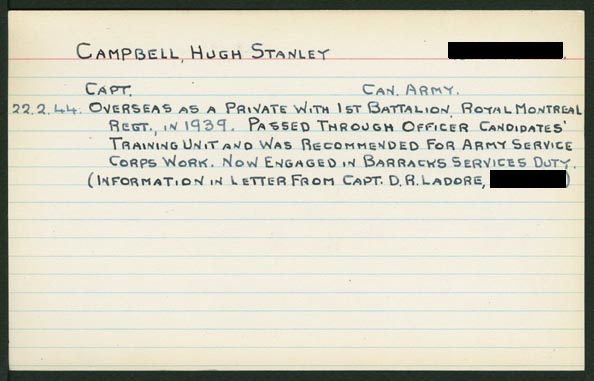 CAMPBELL, HUGH STANLEY
CAPT. CAN. ARMY.
22.2.44. OVERSEAS AS A PRIVATE WITH 1ST BATTALION, ROYAL MONTREAL
REGT., IN 1939. PASSED THROUGH OFFICER CANDIDATES'
TRAINING UNIT AND WAS RECOMMENDED FOR ARMY SERVICE
CORPS WORK. NOW ENGAGED IN BARRACKS SERVICES DUTY.
(INFORMATION IN LETTER FROM CAPT. D.R. LADORE, )